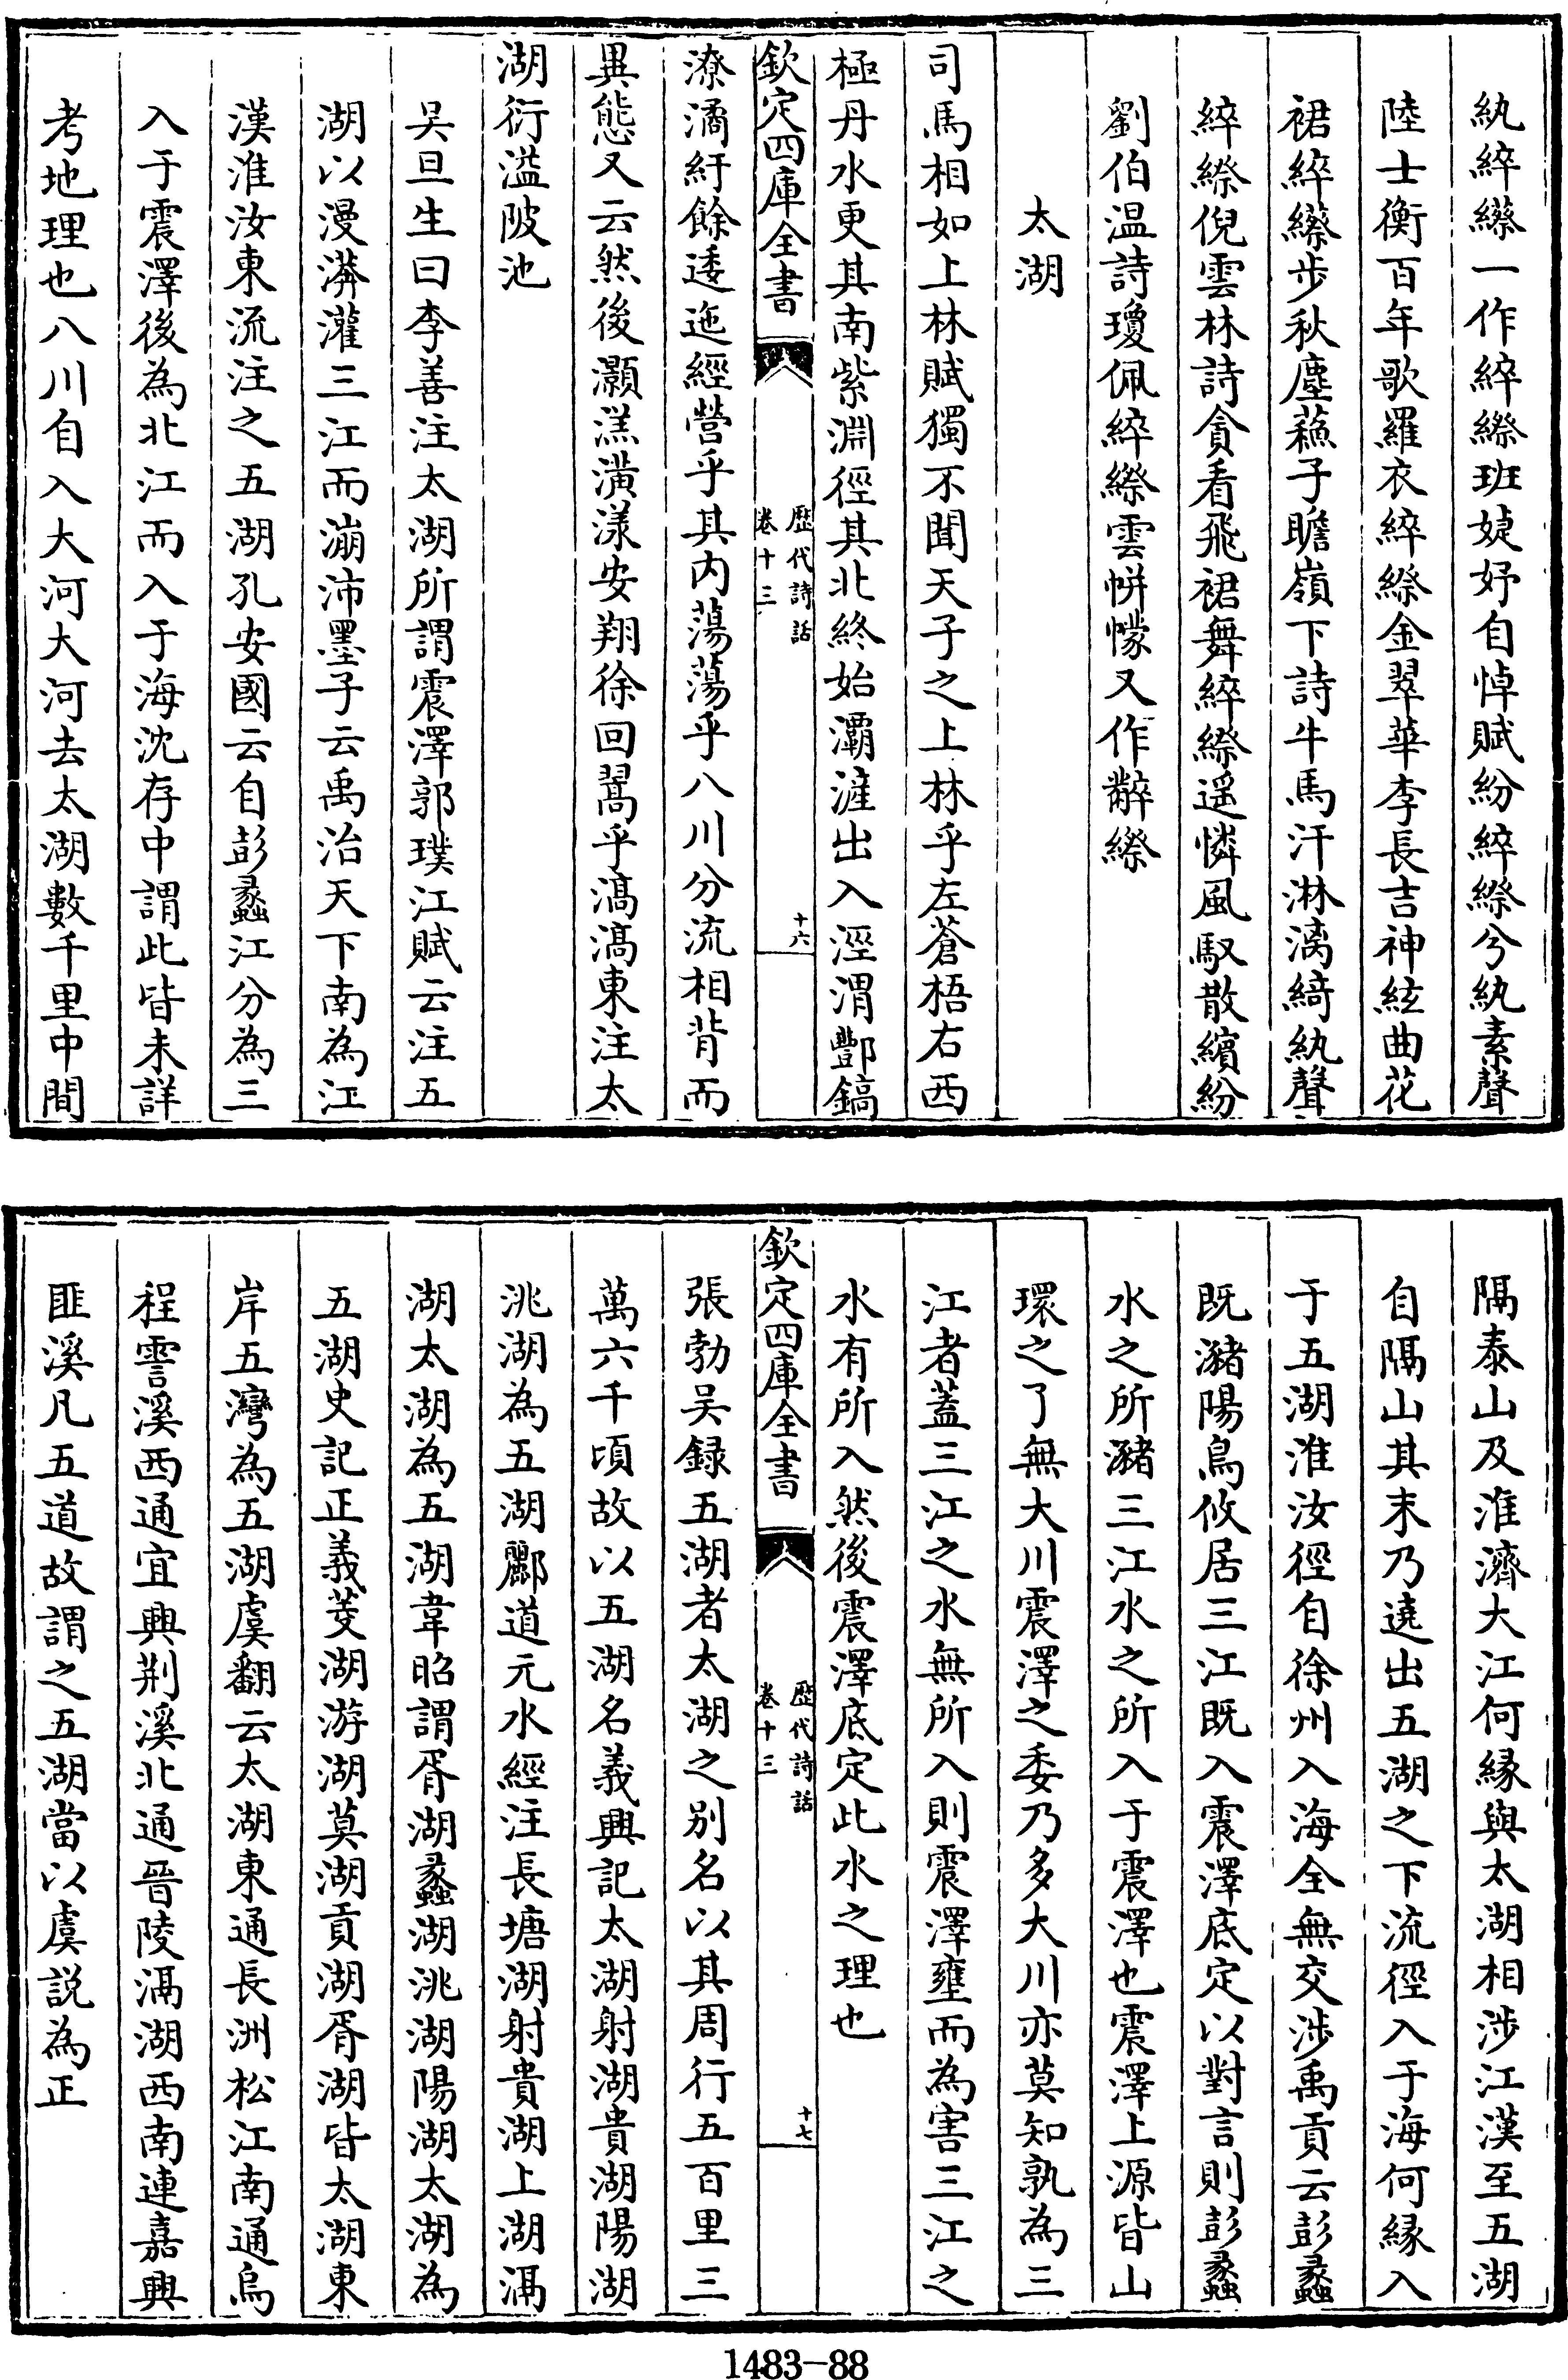 紈綷䌨一作綷縩班婕妤自悼賦紛綷縩兮紈素聲
陸士衡百年歌羅衣綷縩金翠華李長吉神絃曲花
裙綷䌨步秋塵蘓子瞻嶺下詩牛馬汗淋漓綺紈聲
綷縩倪雲林詩貪看飛裙舞綷縩遥憐風馭散繽紛
劉伯温詩瓊佩綷縩雲帡幪又作粹縩
太湖
司馬相如上林賦獨不聞天子之上林乎左蒼梧右西
極丹水更其南紫淵徑其北終始灞滻出入涇渭酆鎬
欽定四庫全書
歴代詩話
卷十三
十六
潦潏紆餘逶迤經營乎其内蕩蕩乎八川分流相背而
異態又云然後灝溔潢漾安翔徐回翯乎滈滈東注太
湖衍溢陂池
吳旦生曰李善注太湖所謂震澤郭璞江賦云注五
湖以漫漭灌三江而漰沛墨子云禹治天下南為江
漢淮汝東流注之五湖孔安國云自彭蠡江分為三
入于震澤後為北江而入于海沈存中謂此皆未詳
考地理也八川自入大河大河去太湖數千里中間
隔泰山及淮濟大江何縁與太湖相涉江漢至五湖
自隔山其末乃遶出五湖之下流徑入于海何縁入
于五湖淮汝徑自徐州入海全無交渉禹貢云彭蠡
既瀦陽鳥攸居三江既入震澤底定以對言則彭蠡
水之所瀦三江水之所入于震澤也震澤上源皆山
環之了無大川震澤之委乃多大川亦莫知孰為三
江者蓋三江之水無所入則震澤壅而為害三江之
水有所入然後震澤底定此水之理也
欽定四庫全書
歴代詩話
卷十三
十七
張勃吳録五湖者太湖之别名以其周行五百里三
萬六千頃故以五湖名義興記太湖射湖貴湖陽湖
洮湖為五湖酈道元水經注長塘湖射貴湖上湖滆
湖太湖為五湖韋昭謂胥湖蠡湖洮湖陽湖太湖為
五湖史記正義菱湖游湖莫湖貢湖胥湖皆太湖東
岸五灣為五湖虞翻云太湖東通長洲松江南通烏
程霅溪西通宜興荆溪北通晉陵滆湖西南連嘉興
匪溪凡五道故謂之五湖當以虞説為正
1483-88